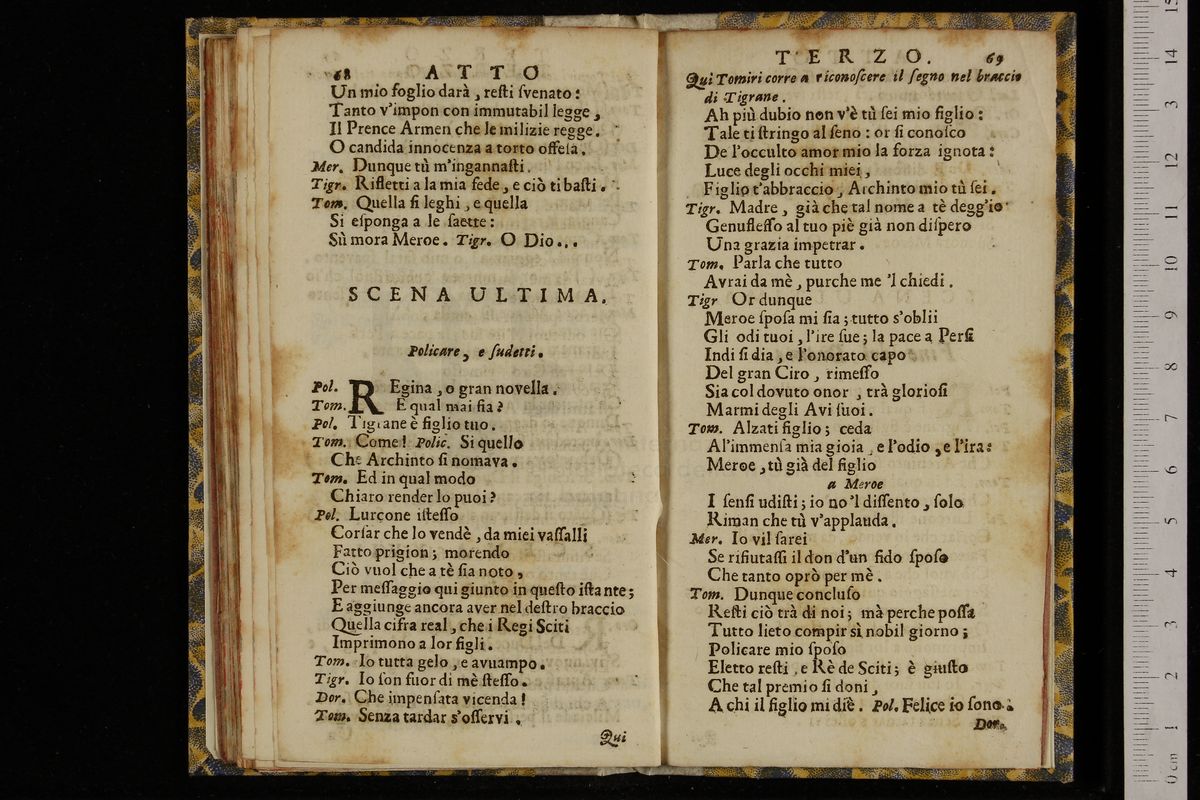 68 ATTO
Un mio foglio darà, reſti ſvenato:
Tanto v'impon con immutabil legge,
Il Prence Armen che le milizie regge.
O candida innocenza a torto offeſa.
Mer. Dunque tù m'ingannaſti.
Tigr. Rifletti a la mia fede, e ciò ti baſti.
Tom. Quella ſi leghi, e quella
Si eſponga a le ſaette:
Sù mora Meroe. Tigr. O Dio...
SCENA ULTIMA.
Policare, e ſudetti.
Pol. REgina, o gran novella.
Tom. E qual mai ſia?
Pol. Tigrane è figlio tuo.
Tom. Come! Polic. Si quello
Che Archinto ſi nomava.
Tom. Ed in qual modo
Chiaro render lo puoi?
Pol. Lurcone iſteſſo
Corſar che lo vendè, da miei vaſſalli
Fatto prigion; morendo
Ciò vuol che a tè ſia noto,
Per meſſaggio qui giunto in queſto iſtante;
E aggiunge ancora aver nel deſtro braccio
Quella cifra real, che i Regi Sciti
Imprimono a lor figli.
Tom. Io tutta gelo, e avuampo.
Tigr. Io ſon fuor di mè ſteſſo.
Dor. Che impenſata vicenda!
Tom. Senza tardar s'oſſervi.
Qui
TERZO. 69
Qui Tomiri corre a riconoſcere il ſegno nel braccio
di Tigrane.
Ah più dubio non v'è tù ſei mio figlio:
Tale ti ſtringo al ſeno: or ſi conoſco
De l'occulto amor mio la forza ignota:
Luce degli occhi miei,
Figlio t'abbraccio, Archinto mio tù ſei.
Tigr. Madre, già che tal nome a tè degg'io
Genufleſſo al tuo piè già non diſpero
Una grazia impetrar.
Tom. Parla che tutto
Avrai da mè, purche me 'l chiedi.
Tigr Or dunque
Meroe ſpoſa mi ſia; tutto s'oblii
Gli odi tuoi, l'ire ſue; la pace a Perſi
Indi ſi dia, e l'onorato capo
Del gran Ciro, rimeſſo
Sia col dovuto onor, trà glorioſi
Marmi degli Avi ſuoi.
Tom. Alzati figlio; ceda
Al'immenſa mia gioia, e l'odio, e l'ira:
Meroe, tù già del figlio
a Meroe
I ſenſi udiſti; io no'l diſſento, ſolo
Riman che tù v'applauda.
Mer. Io vil ſarei
Se rifiutaſſi il don d'un fido ſpoſo
Che tanto oprò per mè.
Tom. Dunque concluſo
Reſti ciò trà di noi; mà perche poſſa
Tutto lieto compir sì nobil giorno;
Policare mio ſpoſo
Eletto reſti, e Rè de Sciti; è giuſto
Che tal premio ſi doni,
A chi il figlio mi diè. Pol. Felice io ſono.
Dor.
0 cm 1 2 3 4 5 6 7 8 9 10 11 12 13 14 15